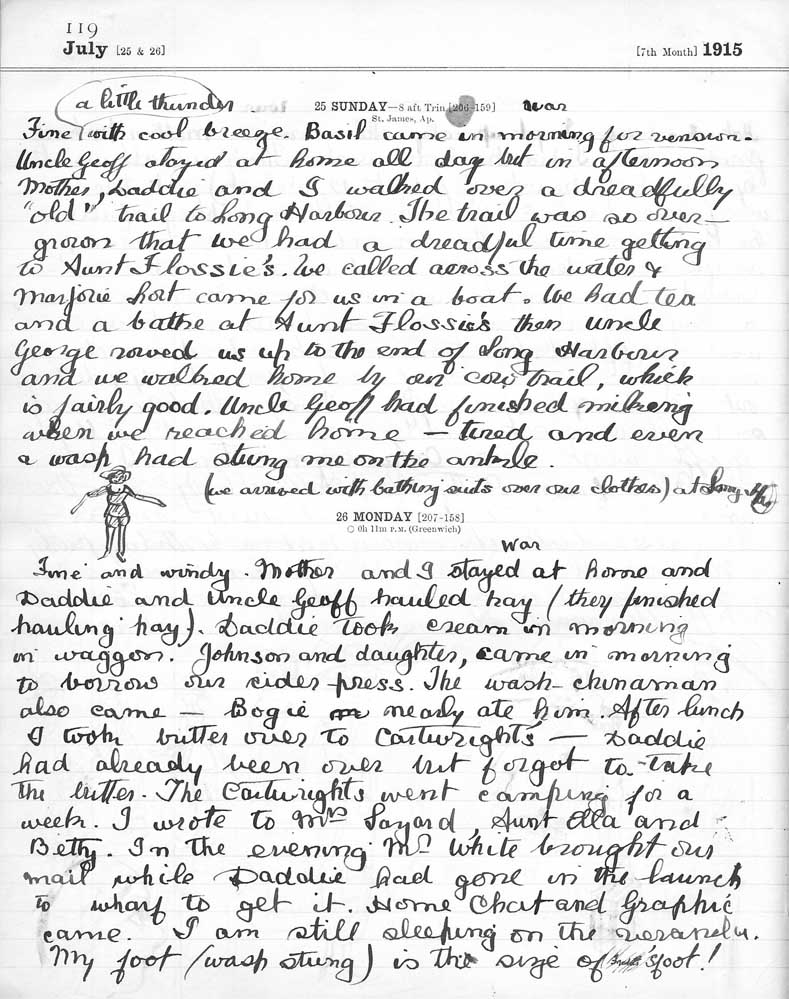 119
July [25 & 26] [7th Month] 1915
a little thunder 25 SUNDAY—8 aft Trin [206-159] War
St. James, Ap.
Fine (with cool breeze. Basil came in morning for venison.
Uncle Geoff stayed at home all day but in afternoon
Mother, Daddie and I walked over a dreadfully
"old" trail to Long Harbour. The trail was so over-
grown that we had a dreadful time getting
to Aunt Flossie's. We called across the water &
Marjorie came for us in a boat. We had tea
and a bathe at Aunt Flossie's then Uncle
George rowed us up to the end of Long Harbour
and we walked home by our cow trail, which
is fairly good. Uncle Geoff had finished milking
when we reached home — tired and even
a wasp had stung me on the ankle.
(we arrived with bathing suits over our clothes) at Long H
26 MONDAY [207-158]
0h 11m P.M. (Greenwich)
War
Fine and windy. Mother and I stayed at home and
Daddie and Uncle Geoff hauled hay (they finished
hauling hay). Daddie took cream in morning
in waggon. Johnson and daughter, came in morning
to borrow our cider-press. The wash-chinaman
also came — Bogie nearly ate him. After lunch
I took butter over to Cartwright's — Daddie
had already been over but forgot to take
the butter. The Cartwrights went camping for a
week. I wrote to Mrs Layard, Aunt Ella and
Betty. In the evening Mr White brought our
mail while Daddie had gone in the launch
to wharf to get it. Home Chat and Graphic
came. I am still sleeping on the veranda.
My foot (wasp stung) is the size of foot!